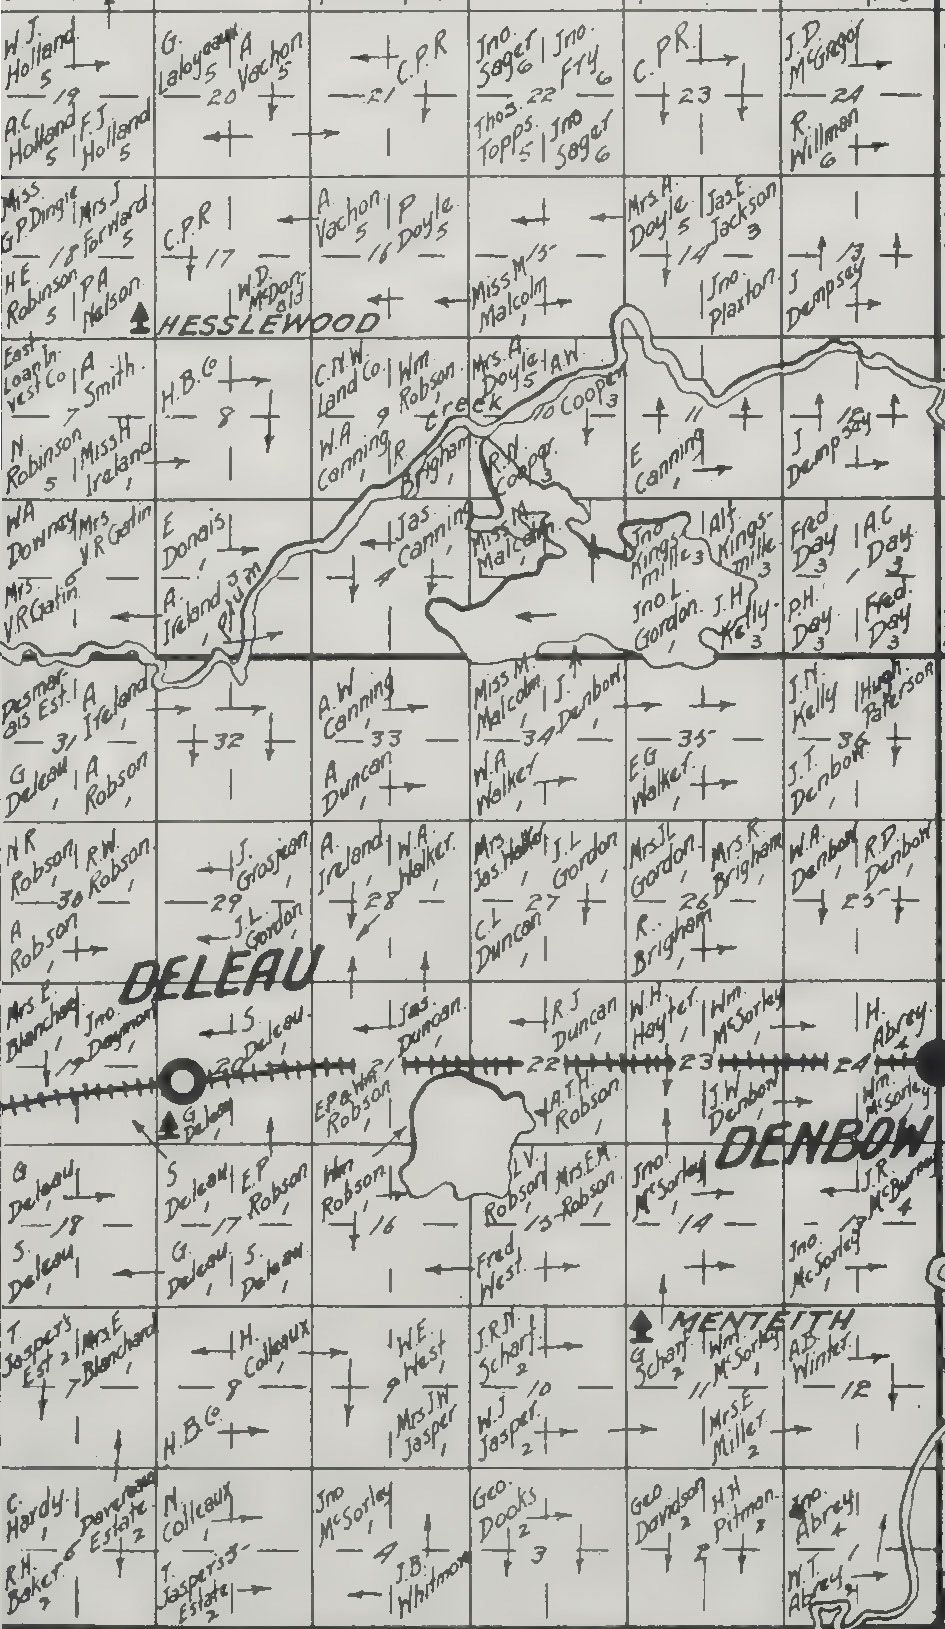 W. J.
Holland
5
G.
Laloyeaux
5
A
Vachon
5
C.P.R
Jno.
Sager
6
Jno.
FTY
6
C.P.R.
J.D.
McGregor
19
20
21
22
23
24
A.C
Holland
5
F.J.
Holland
5
Thos.
Topps.
5
Jno
Sager
6
R.
Willman
6
Miss.
G.P.Dingle
Mrs.J
Forward
5
C.P.R
A.
Vachon
5
P
Doyle
5
Mrs.A.
Doyle
5
Jas.E.
Jackson
3
18
17
16
15
14
13
H E
Robinson
5
P A
Nelson
W.D.
McDon-
ald
Miss M
Malcolm
Jno.
Plaxton
J
Dempsey
HESSLEWOOD
East.
Loan In.
vest Co
A
Smith.
H.B.Co
C.N.W.
Land Co.
Wm
Robson
Mrs. A.
Doyle
5
A.W.
Cooper
3
7
8
9
10
11
12
creek
N
Robinson
5
Miss H
Ireland
W.A
Canning
R
Brigham
R.N
Cooper
3
E
Canning
J
Dempsey
WA
Downey
Mrs
V.R Gatin
E
Donais
Jas.
Canning
Miss. M.
Malcolm
Jno
Kings-
mill
3
Alf.
Kings-
mill
3
Fred
Day
3
A.C
Day.
3
6
4
Mrs.
V.R Gatin
A.
Ireland
Plum
Jno L.
Gordon
J.H
Kelly
3
P.H.
Day
3
Fred.
Day
3
Desmar-
ais Est.
A
Ireland
A.W
Canning
Miss M.
Malcolm
J.
Denbow
J.N
Kelly
Hugh.
Paterson
31
32
33
34
35
36
G
Deleau
A
Robson
A
Duncan
W.A
Walker
E.G
Walker
J.T.
Denbow
N R
Robson
R.W.
Robson
J.
Grosjean
A.
Ireland
W.A.
Walker
Mrs.
Jas. Walker
J.L
Gordon
Mrs.J.L
Gordon
Mrs.R.
Brigham
W.A.
Denbow
R.D.
Denbow
30
29
28
27
26
25
A
Robson
J.L.
Gordon
C.L
Duncan
R..
Brigham
DELEAU
Mrs. E.
Blanchard
Jno.
Daymond
S.
Deleau
Jas.
Duncan
R J
Duncan
W.H
Hayter
Wm.
McSorley
H.
Abrey
4
19
20
21
22
23
24
G
Deleau
E.P & Wm
Robson
A.T.H.
Robson
J.W
Denbow
Wm.
McSorley
DENBOW
G
Deleau
S
Deleau
E.P
Robson
Wm
Robson
L.V.
Robson
Mrs.E.M.
Robson
Jno
McSorley
J.R.
McBurney
4
18
17
16
15
14
13
S.
Deleau
G.
Deleau
S.
Deleau
Fred
West
Jno.
McSorley
MENTEITH
T
Jasper's
Est 2
Mrs.E
Blanchard
H.
Colleaux
W.E.
West
J.R.N.
Scharf
2
G
Scharf
2
Wm.
McSorley
A.B.
Winter
7
8
9
10
11
12
H.B.Co
Mrs.J.W
Jasper
W.J
Jasper
2
Mrs.E
Miller
2
C.
Hardy
Estate
2
N.
Colleaux
Jno
McSorley
Geo.
Dooks
2
Geo
Davidson
2
H.H
Pitman
2
Jno.
Abrey
4
6
5
4
3
2
1
R.H.
Baker
2
T.
Jaspers
Estate
2
J.B.
Whitmore
W.T.
Abrey
2